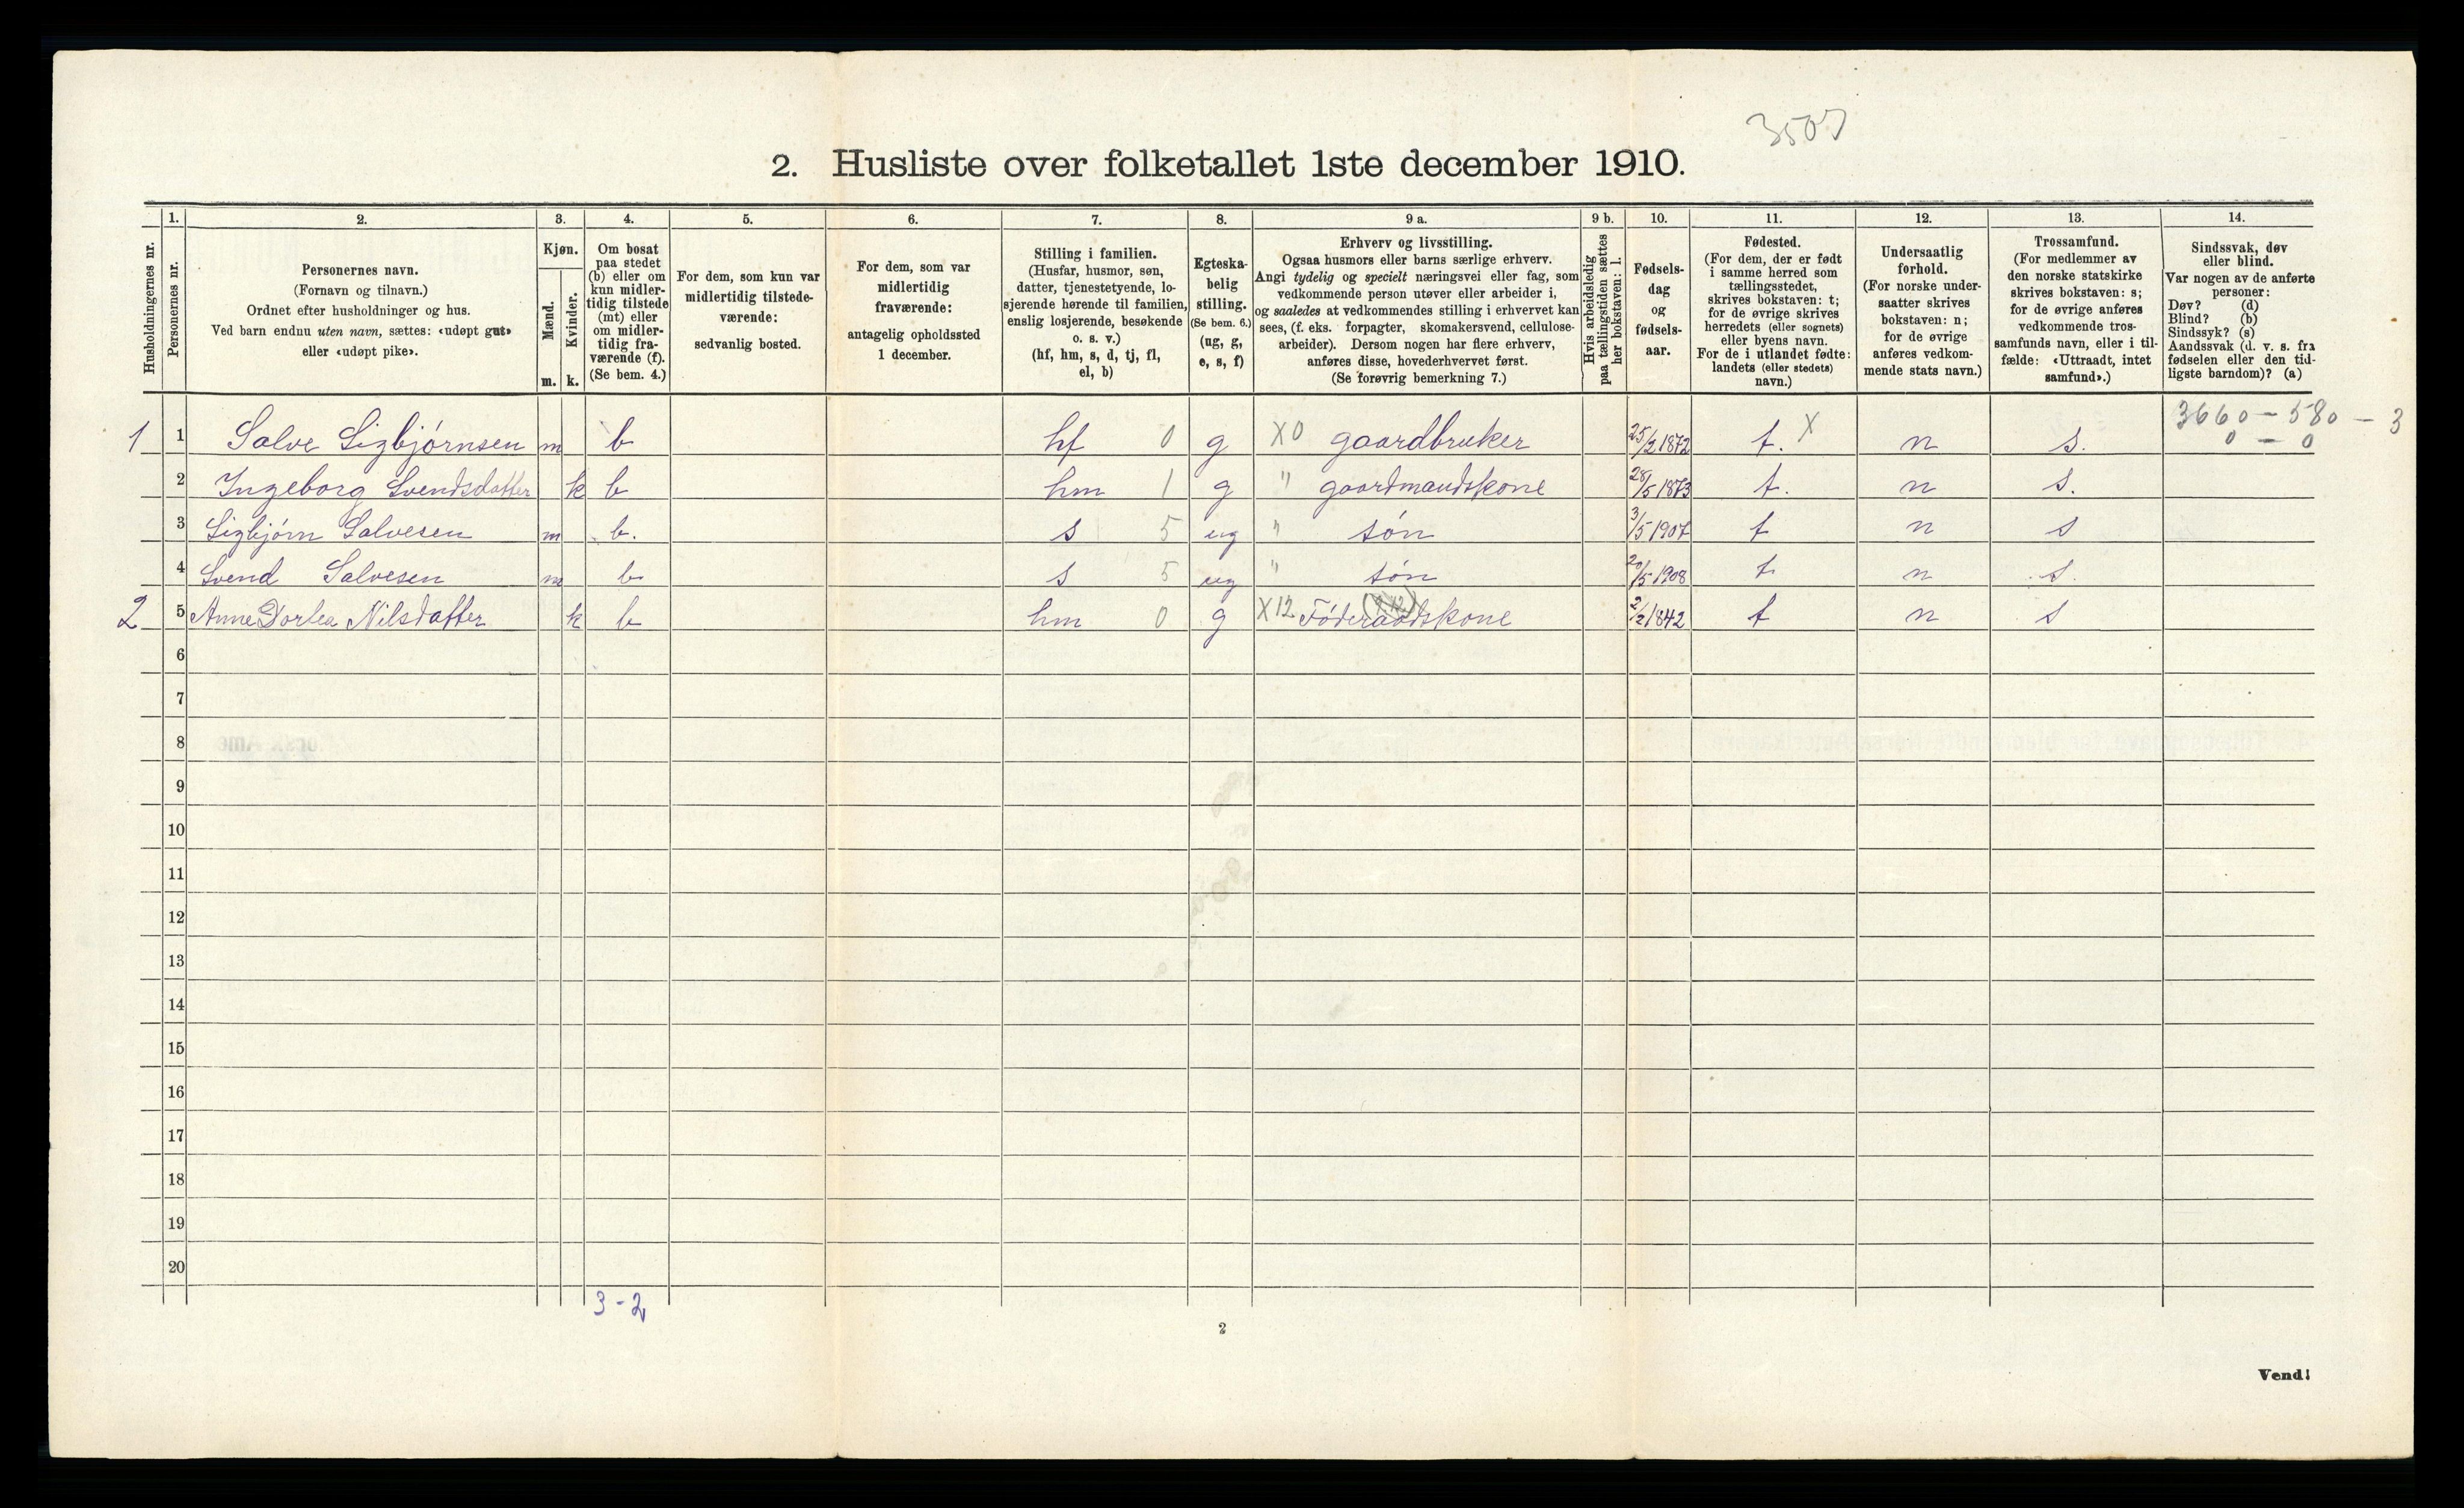 3507
2. Husliste over folketallet 1ste december 1910.
Husholdningernes nr.
1.
Personernes nr.
2.
Personernes navn.
(Fornavn og tilnavn.)
Ordnet efter husholdninger og hus.
Ved barn endnu uten navn, sættes: «udøpt gut»
eller «udøpt pike».
3.
Kjøn.
Mænd.
Kvinder.
m. k.
4.
Om bosat
paa stedet
(b) eller om
kun midler-
tidig tilstede
(mt) eller
om midler-
tidig fra-
værende (f).
(Se bem. 4.)
5.
For dem, som kun var
midlertidig tilstede-
værende:
sedvanlig bosted.
6.
For dem, som var
midlertidig
fraværende:
antagelig opholdssted
1 december.
7.
Stilling i familien.
(Husfar, husmor, søn,
datter, tjenestetyende, lo-
sjerende hørende til familien,
enslig losjerende, besøkende
o. s. v.)
(hf, hm, s, d, tj, fl,
el, b)
8.
Egteska-
belig
stilling.
(Se bem. 6.)
(ug, g,
e, s, f)
9 a.
Erhverv og livsstilling.
Ogsaa husmors eller barns særlige erhverv.
Angi tydelig og specielt næringsvei eller fag, som
vedkommende person utøver eller arbeider i,
og saaledes at vedkommendes stilling i erhvervet kan
sees, (f. eks. forpagter, skomakersvend, cellulose-
arbeider). Dersom nogen har flere erhverv,
anføres disse, hovederhvervet først.
(Se forøvrig bemerkning 7.)
9 b.
Hvis arbeidsledig
paa tællingstiden sættes
her bokstaven: l.
10.
Fødsels-
dag
og
fødsels-
aar.
11.
Fødested.
(For dem, der er født
i samme herred som
tællingsstedet,
skrives bokstaven: t;
for de øvrige skrives
herredets (eller sognets)
eller byens navn.
For de i utlandet fødte:
landets (eller stedets)
navn.)
12.
Undersaatlig
forhold.
(For norske under-
saatter skrives
bokstaven: n;
for de øvrige
anføres vedkom-
mende stats navn.)
13.
Trossamfund.
(For medlemmer av
den norske statskirke
skrives bokstaven: s;
for de øvrige anføres
vedkommende tros-
samfunds navn, eller i til-
fælde: «Uttraadt, intet
samfund».)
14.
Sindssvak, døv
eller blind.
Var nogen av de anførte
personer:
Døv? (d)
Blind? (b)
Sindssyk? (s)
Aandssvak (d. v. s. fra
fødselen eller den tid-
ligste barndom)? (a)
3660 - 580 - 3
1 1 Salve Sigbjørnsen m b hf 0 g X0 gaardbruker 25/2 1872 t. X n s. 0 - 0
2 Ingeborg Svendsdatter k b hm 1 g " gaardmandskone 28/5 1873 t. n s.
3 Sigbjørn Salvesen m b. s 5 ug " søn 3/5 1907 t n s
4 Svend Salvesen m b s 5 ug " søn 20/5 1908 t n s.
2 5 Anne Dorlea Nilsdatter k b hm 0 g X12 Føderaadskone 2/2 1842 t n s
6
7
8
9
10
11
12
13
14
15
16
17
18
19
20
3-2
2
Vend!